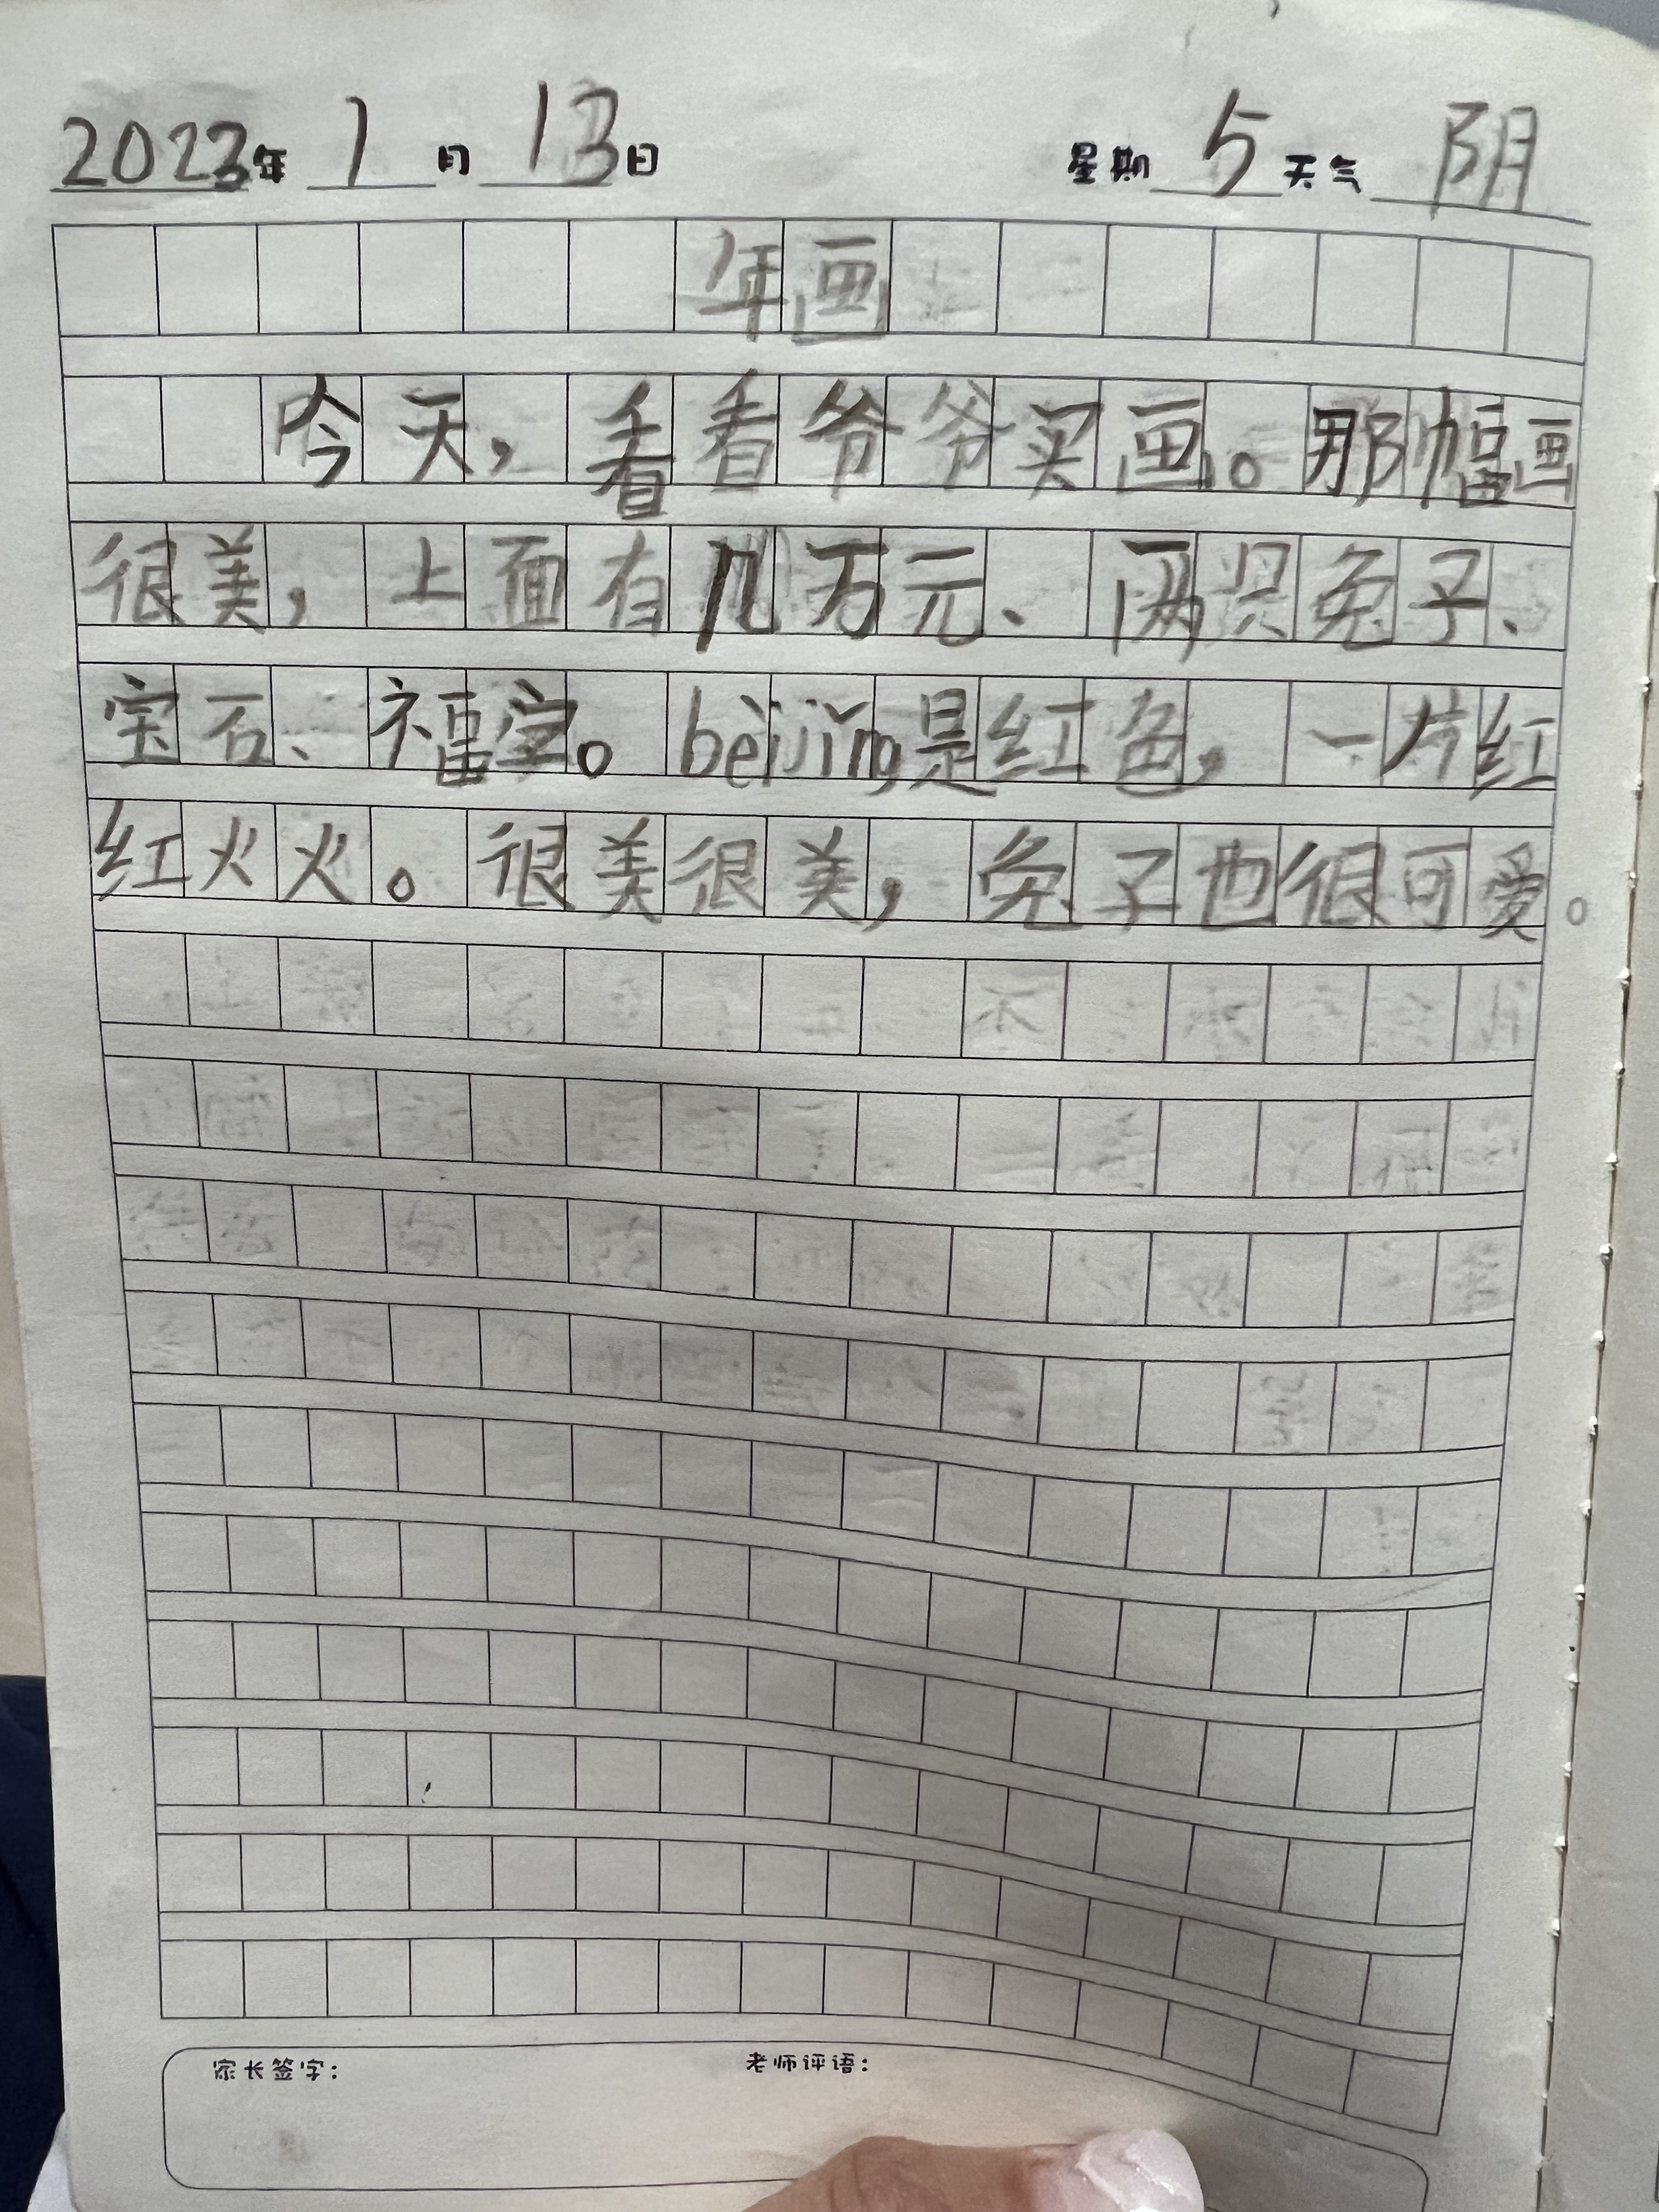 2023年 1 月 13 日 星期 5 天气 阴
年画
今天，看看爷爷买画。那幅画
很美，上面有几万元、两只兔子、
宝石、福宝。beijing是红色，一片红
红火火。很美很美，兔子也很可爱。
家长签字： 老师评语：